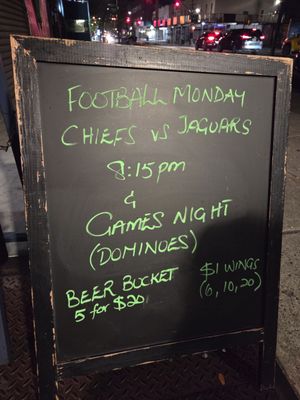 FOOTBALL MONDAY
CHIEFS VS JAGUARS
8:15pm
&
GAMES NIGHT
(DOMINOES)
BEER BUCKET
5 for $20
$1 WINGS
(6, 10, 20)